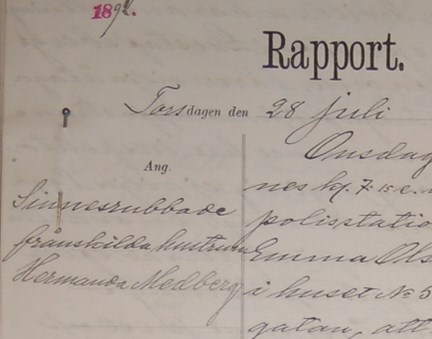 1892.
Rapport.
Torsdagen den 28 juli
Ang.
Sinnesrubbade
frånskilda hustrun
Hermanda Medberg
Onsdag
nes kl. 7.15 e.m
polisstatio
Emma Ols
i huset № 5
gatan, att